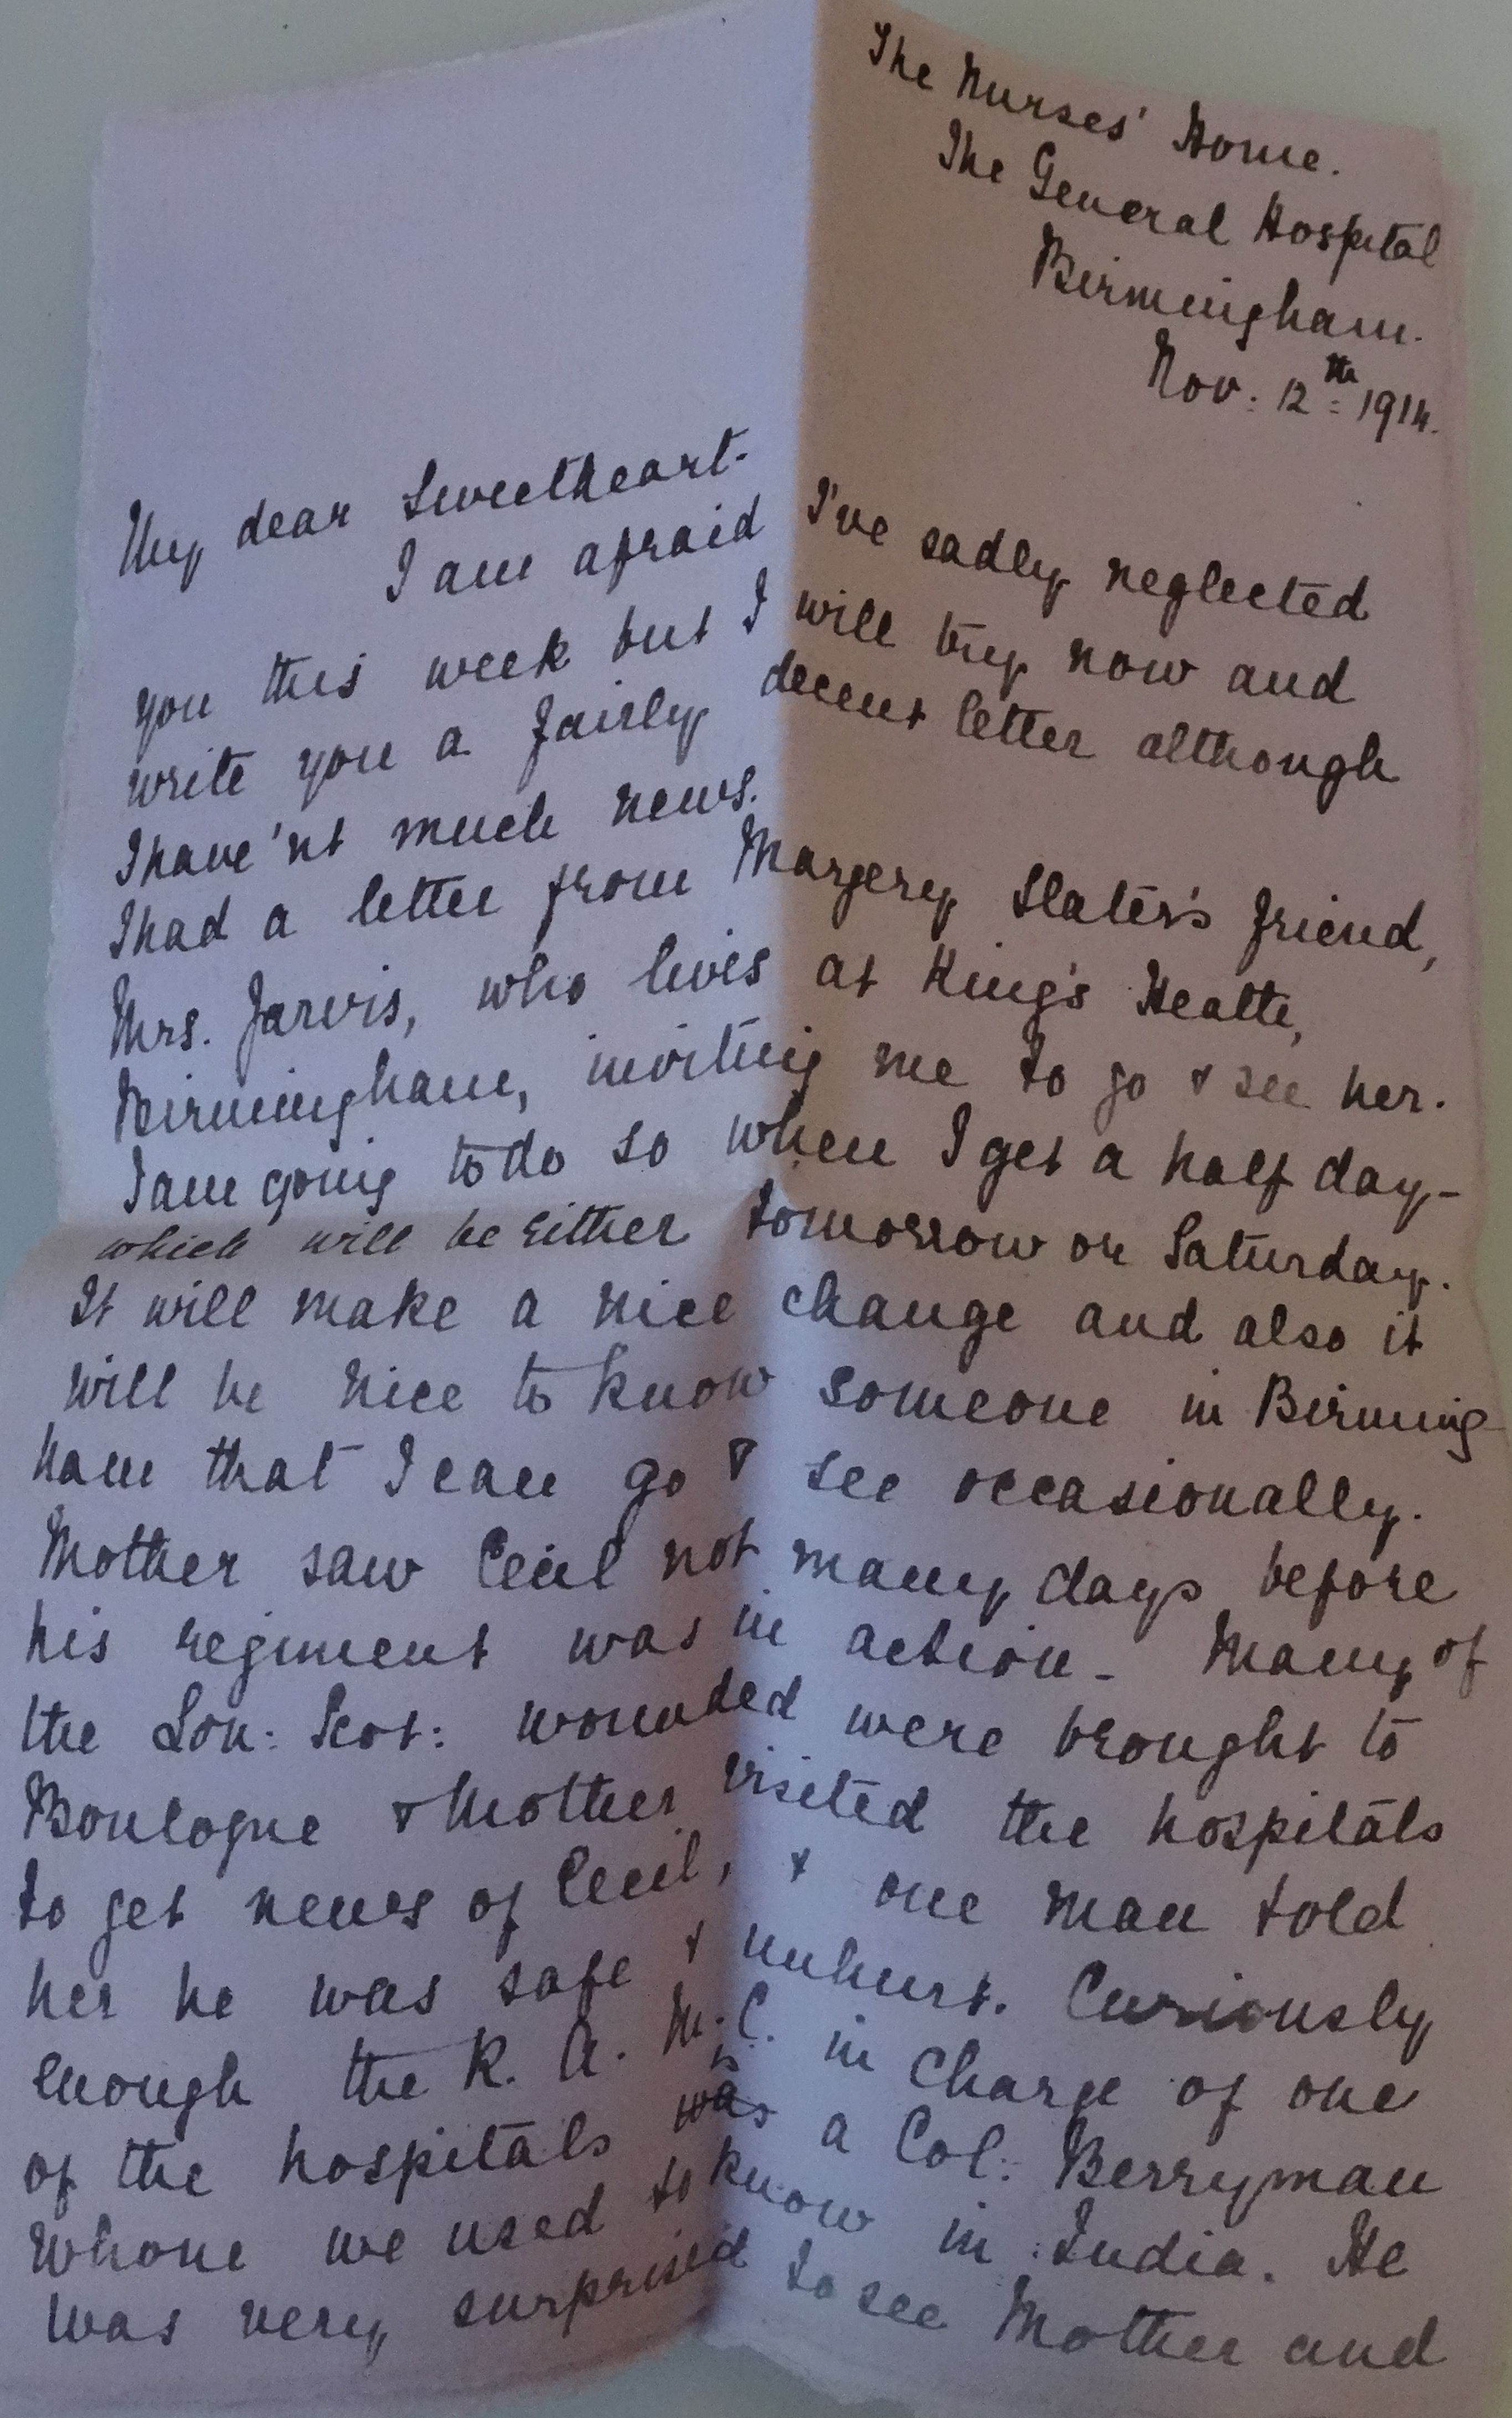 The Nurses' Home.
The General Hospital
Birmingham.
Nov: 12th 1914.
My dear Sweetheart-
I am afraid I've sadly neglected
you this week but I will try now and
write you a fairly decent letter although
I have'nt much news.
I had a letter from Margery Slater's friend,
Mrs. Jarvis, who lives at King's Heath,
Birmingham, inviting me to go & see her.
I am going to do so when I get a half day-
which will be either tomorrow or Saturday.
It will make a nice change and also it
will be nice to know someone in Birming
ham that I can go & see occasionally.
Mother saw Cecil not many days before
his regiment was in action - Many of
the Lon: Scot: wounded were brought to
Boulogne & Mother visited the hospitals
to get news of Cecil, & one man told
her he was safe & unhurt. Curiously
enough the R. A. M. C. in charge of one
of the hospitals was is a Col: Berryman
whom we used to know in India. He
was very surprised to see Mother and